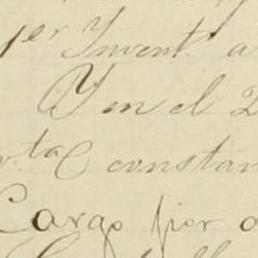 1er Invent.o a
Y en el 2
r.ta C constan
Cargo por a